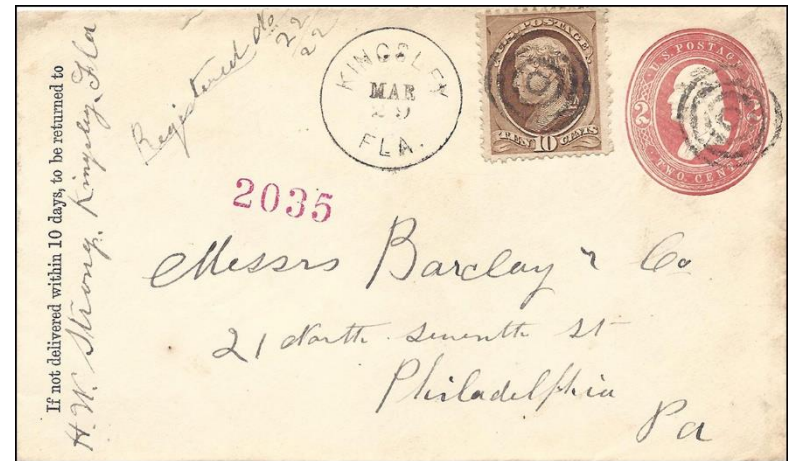 If not delivered within 10 days, to be returned to
H. W. Strong, Kingsley, Fla
Registered No
22
22
KINGSLEY
MAR
29
FLA.
U.S. POSTAGE
TEN 10 CENTS
U.S. POSTAGE
2 2
TWO CENTS
2035
Messrs Barclay & Co
21 North Seventh St
Philadelphia
Pa